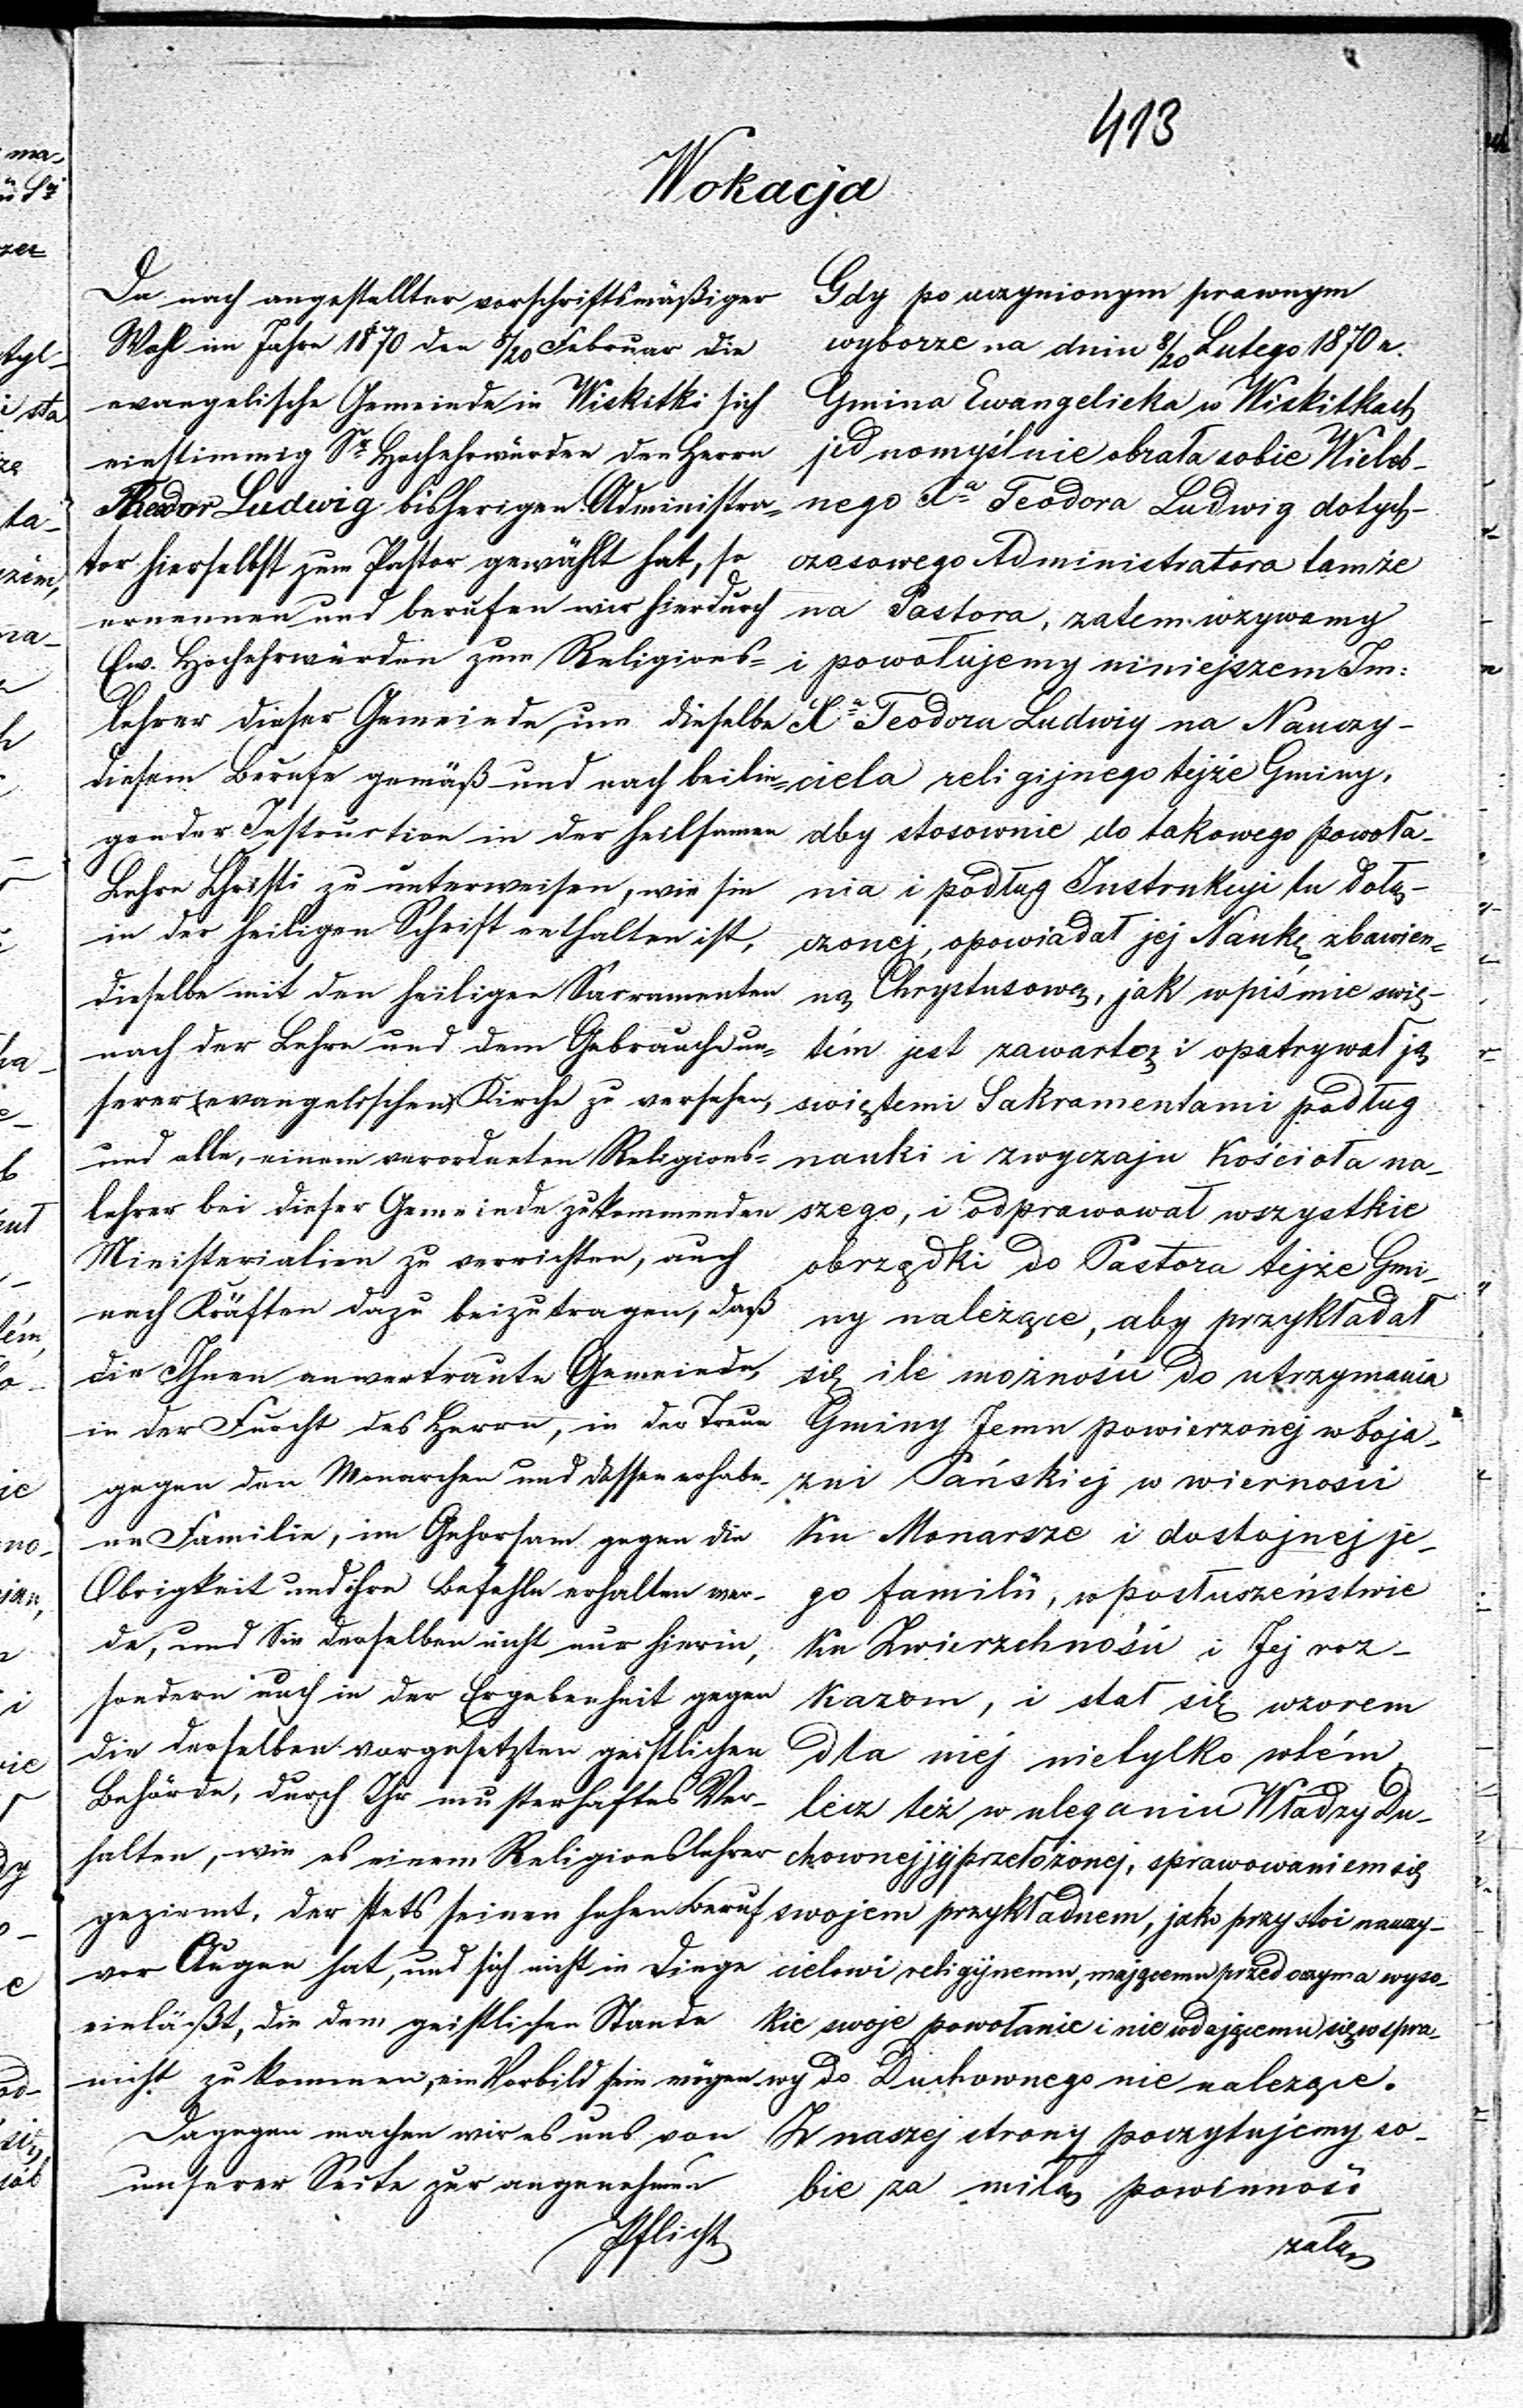 413
Wokacja
Da nach angestellter vorschriftsmäßiger
Wahl im Jahre 1870 den 8/20 Februar die
evangelische Gemeinde in Wiskitki sich
einstimmig Sr Hochehrwürden den Herrn
Theodor Ludwig bisherigen Administra=
tor hierselbst zum Pastor gewählt hat, so
ernennen und berufen wir hierdurch
Ew. Hochehrwürden zum Religions=
lehrer dieser Gemeinde, um dieselbe
diesem Berufe gemäß und nach beilie=
gender Instruction in der heilsamen
Lehre Christi zu unterweisen, wie sie
in der heiligen Schrift enthalten ist,
dieselbe mit den heiligen Sacramenten
nach der Lehre und dem Gebrauche un=
serer (evangelischen) Kirche zu versehen,
und alle, einem verordneten Religions=
lehrer bei dieser Gemeinde zukommenden
Ministerialien zu verrichten, auch
nach Kräften dazu beizutragen, daß
die Ihnen anvertraute Gemeinde,
in der Furcht des Herrn, in der Treue
gegen den Monarchen und dessen erhabe-
ne Familie, im Gehorsam gegen die
Obrigkeit und ihre Befehle erhalten wer-
de, und Sie derselben nicht nur hierin,
sondern auch in der Ergebenheit gegen
die derselben vorgesetzten geistlichen
Behörde, durch Ihr musterhaftes Ver-
halten, wie es einem Religionslehrer
geziemt, der stets seinen hohen Beruf
vor Augen hat, und sich nicht in Dinge
einläßt, die dem geistlichen Stande
nicht zukommen, ein Vorbild sein mögen
Dagegen machen wir es uns von
unserer Seite zur angenehmen
Pflicht
Gdy po uczynionym prawnym
wyborze na dniu 8/20 Lutego 1870 r.
Gmina Ewangelicka w Wiskitkach
jednomyślnie obrała sobie Wieleb-
nego Xa Teodora Ludwig dotych-
czasowego Administratora tamże
na Pastora, zatem wzywamy
i powołujemy niniejszem Im:
Xa Teodora Ludwig na Nauczy-
ciela religijnego tejże Gminy,
aby stosownie do takowego powoła-
nia i podług Instrukcyi tu dołą-
czonej, opowiadał jej Naukę zbawien=
ną Chrystusową, jak w piśmie swię-
tém jest zawartą i opatrywał ją
swiętemi Sakramentami podług
nauki i zwyczaju Kościoła na-
szego, i odprawował wszystkie
obrządki do Pastora tejże Gmi-
ny należące, aby przykładał
się ile możności do utrzymania
Gminy Jemu powierzonej w boja-
zni Pańskiej w wierności
ku Monarsze i dostojnej je-
go familii, w posłuszeństwie
ku Zwierzchności i Jej roz-
kazom, i stał się wzorem
dla niéj nietylko w tém,
lecz też w uleganiu Władzy Du-
chownej jéj przełożonej, sprawowaniem się
swojem przykładnem, jako przystoi nauczy-
cielowi religijnemu, mającemu przed oczyma wyso-
kie swoje powołanie i nie wdającemu się w spra-
wy do Duchownego nie należące.
Z naszej strony poczytujemy so-
bie za miłą powinność
całą